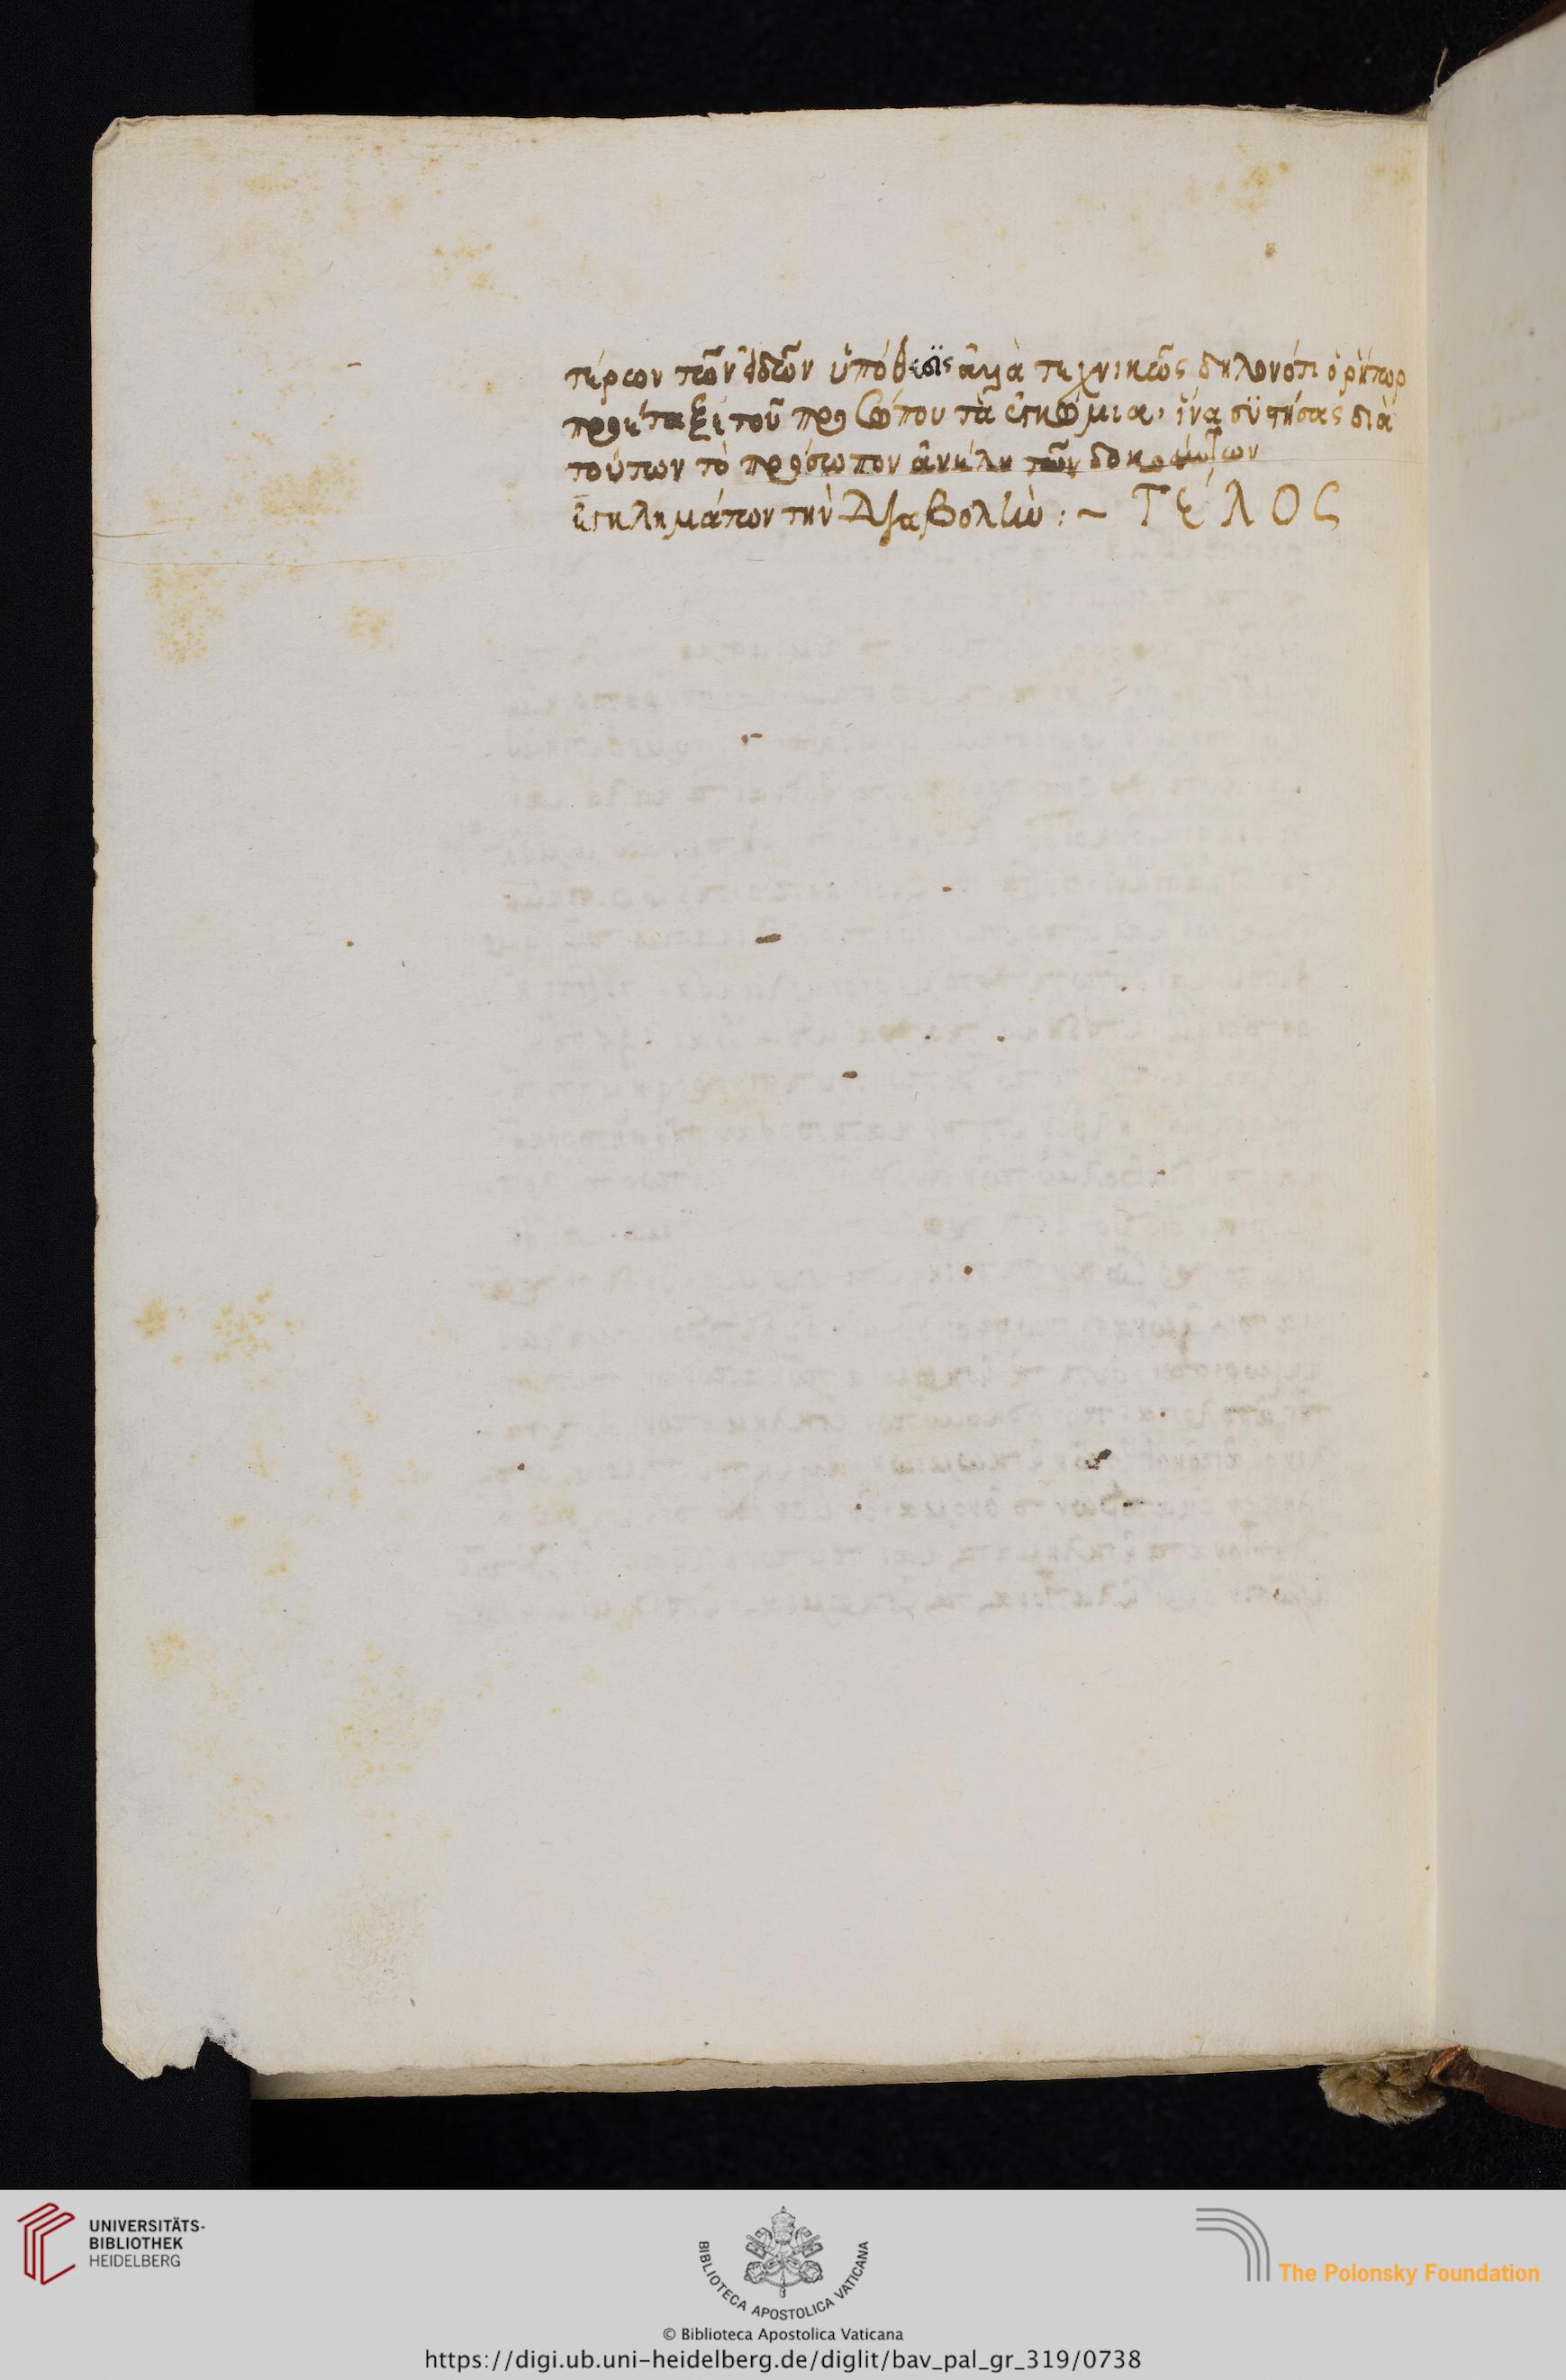 τέρων τῶν ἐδῶν ὑπόθεσις ἀλλὰ τεχνικῶς δηλονότι ὁ ῥήτωρ
προέταξε τοῦ προσώπου τὰ ἐγκώμια, ἵνα συστήσας διὰ
τούτων τὸ πρόσωπον ἀνέλη τῶν δοκούντων
ἐγκλημάτων τὴν Διαβολὴν : ~ ΤΈΛΟC
UNIVERSITÄTS-
BIBLIOTHEK
HEIDELBERG
BIBLIOTECA APOSTOLICA VATICANA
The Polonsky Foundation
© Biblioteca Apostolica Vaticana
https://digi.ub.uni-heidelberg.de/diglit/bav_pal_gr_319/0738